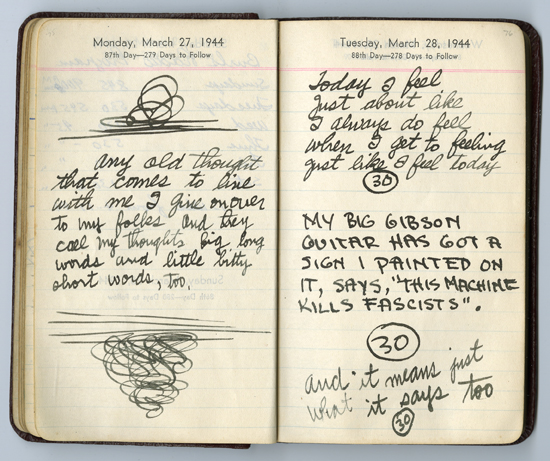 Monday, March 27, 1944
87th Day—279 Days to Follow
any old thought
that comes to live
with me I give on over
to my folks and they
call my thoughts big long
words and little bitty
short words, too.
Tuesday, March 28, 1944
88th Day—278 Days to Follow
Today I feel
just about like
I always do feel
when I get to feeling
just like I feel today
30
MY BIG GIBSON
GUITAR HAS GOT A
SIGN I PAINTED ON
IT, SAYS, "THIS MACHINE
KILLS FASCISTS".
30
and it means just
what it says too
30